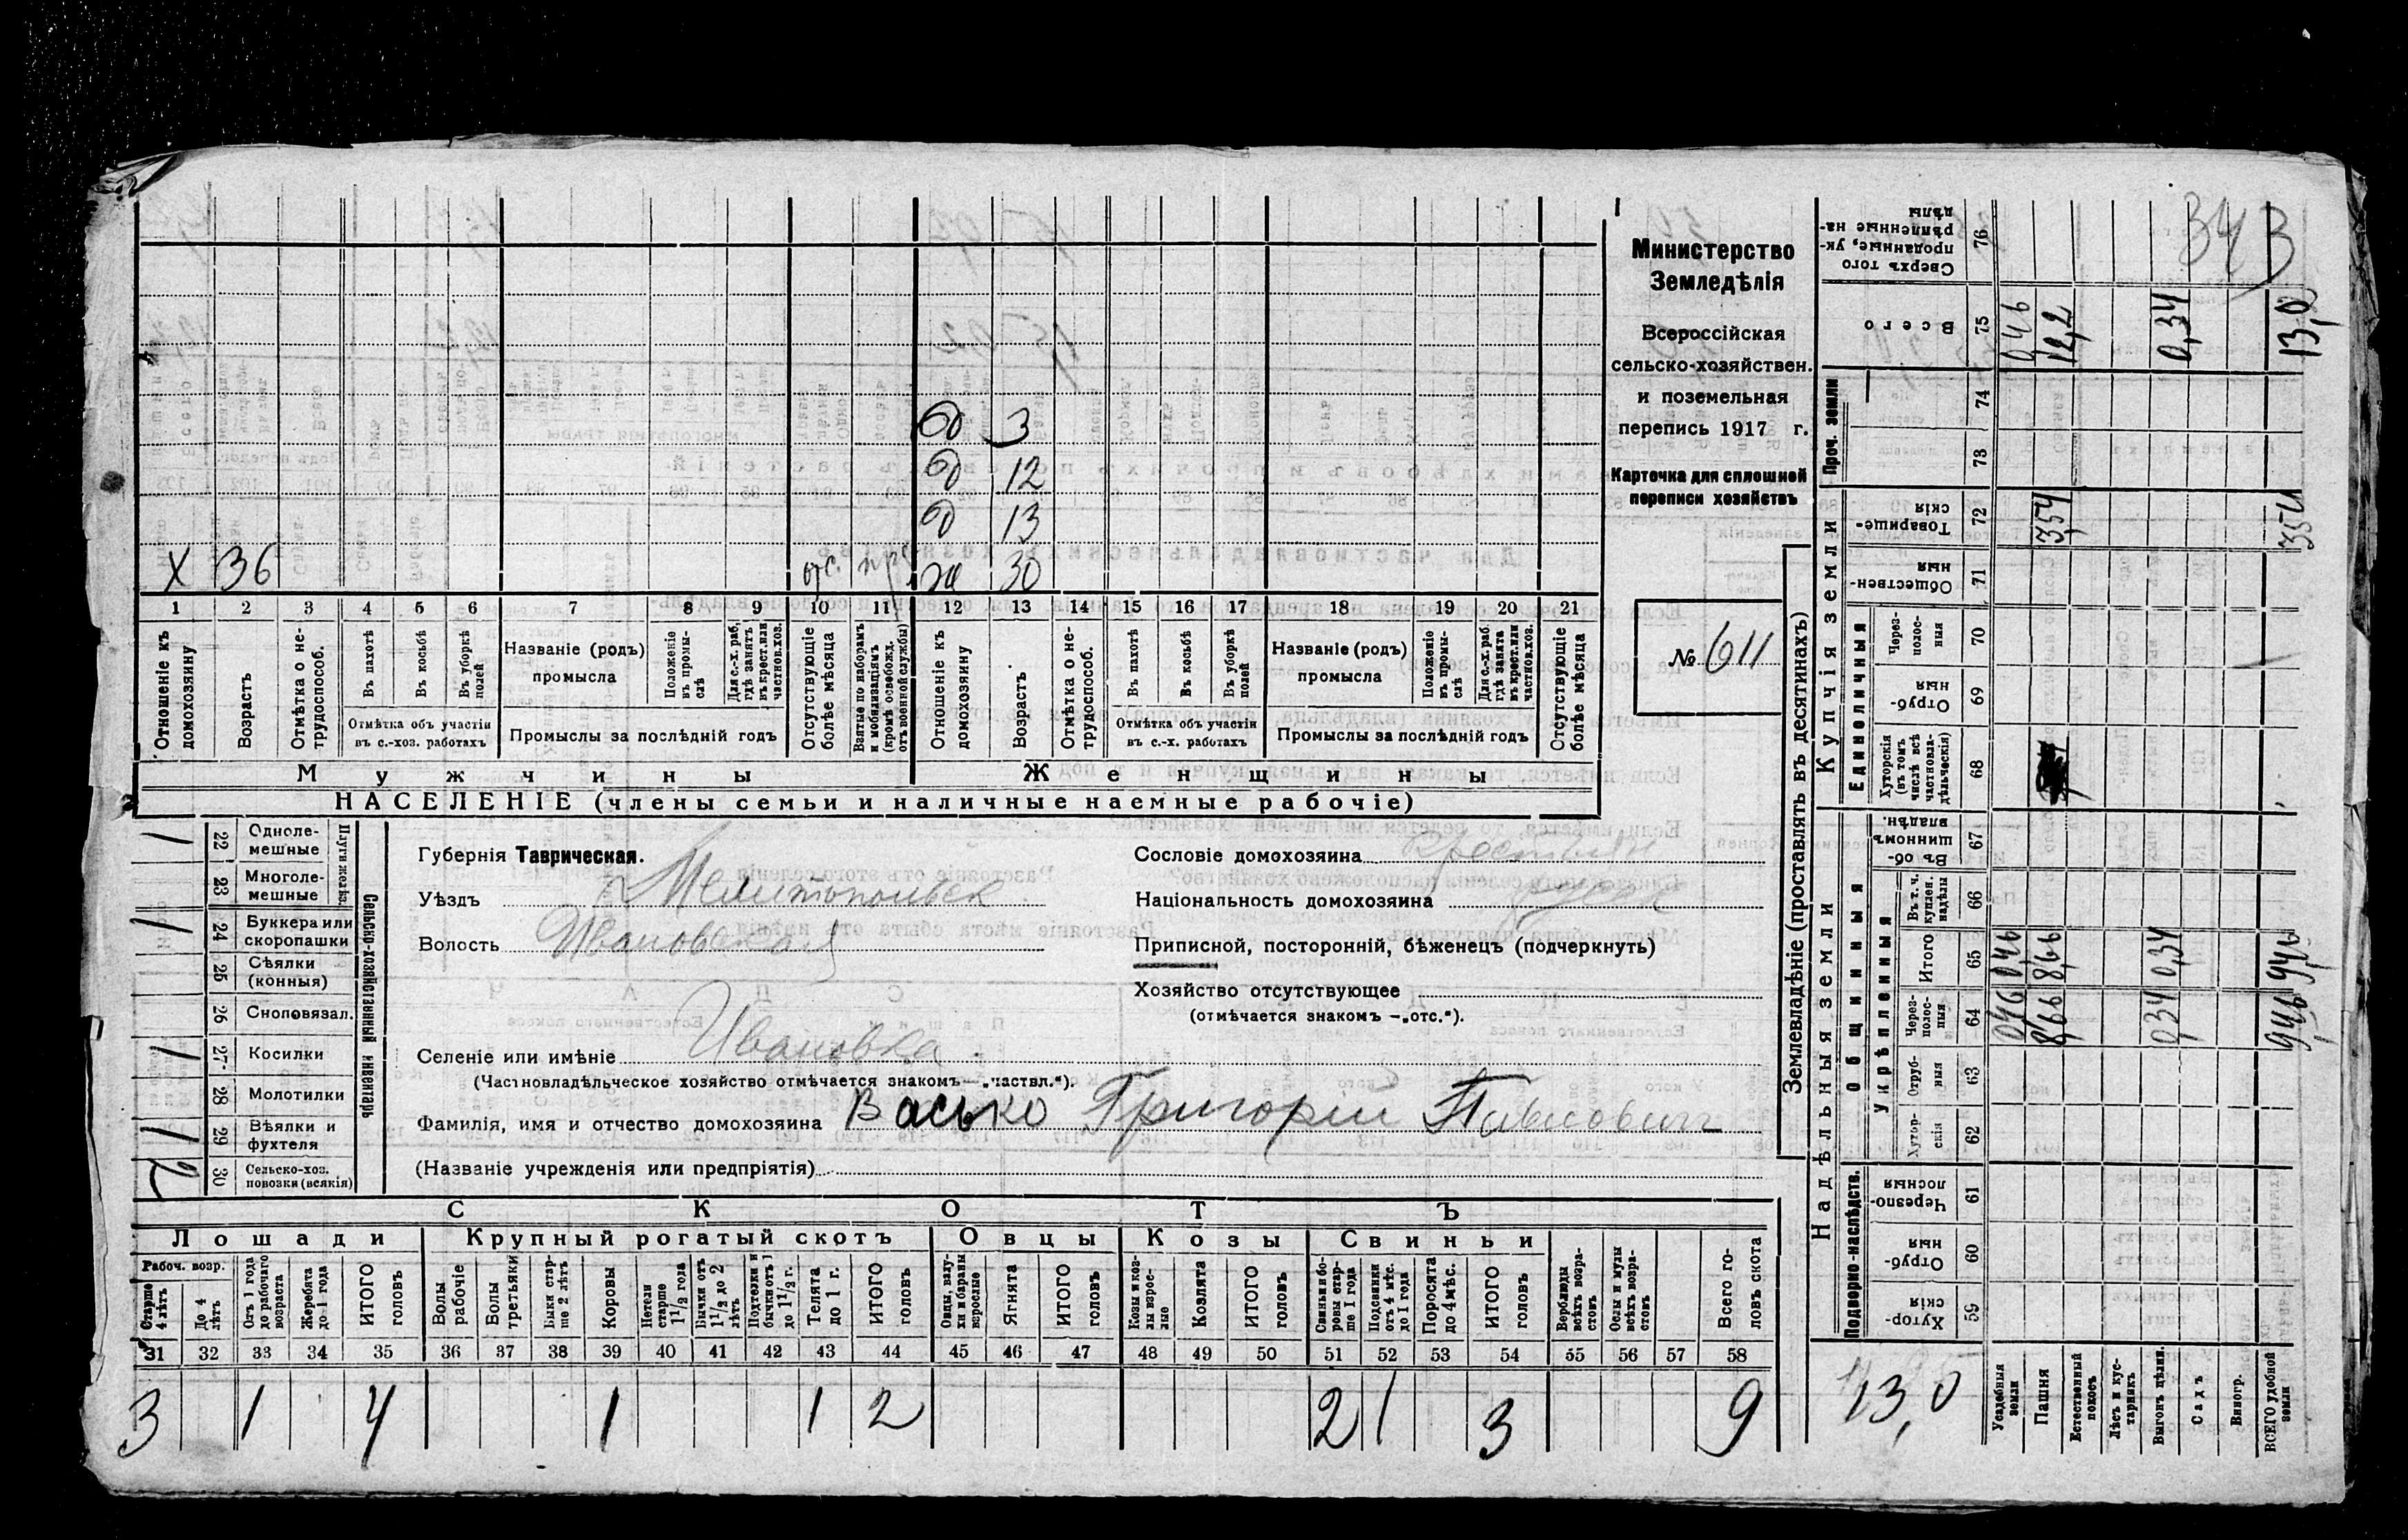 Министерство
Земледѣлія
Всероссійская
сельско-хозяйствен.
и поземельная
перепись 1917 г.
Карточка для сплошной
переписи хозяйствъ
№ 611
д 3
д 12
д 13
Х 36 отс. ж 30
1 2 3 4 5 6 7 8 9 10 11 12 13 14 15 16 17 18 19 20 21
Отношеніе къ домохозяину
Возрастъ
Отмѣтка о не-трудоспособ.
Въ пахотѣ
Въ косьбѣ
Въ уборкѣ полей
Отмѣтка объ участіи въ с.-хоз. работахъ
Названіе (родъ) промысла
Положеніе въ промы-слѣ
Для с.-х. раб. гдѣ занятъ въ крест. или частнов. хоз.
Промыслы за послѣдній годъ
Отсутствующіе болѣе мѣсяца
Взятые по наборамъ и мобилизаціямъ (кромѣ освобожд. отъ военной службы)
Отношеніе къ домохозяину
Возрастъ.
Отмѣтка о не-трудоспособ.
Въ пахотѣ
Въ косьбѣ
Въ уборкѣ полей
Отмѣтка объ участіи въ с.-х. работахъ
Названіе (родъ) промысла
Положеніе въ промы-слѣ
Для с.-х. раб. гдѣ занята въ крест. или частнов. хоз.
Промыслы за послѣдній годъ
Отсутствующіе болѣе мѣсяца
Мужчины Женщины
НАСЕЛЕНІЕ (члены семьи и наличные наемные рабочіе)
Сельско-хозяйственный инвентарь
Плуги желѣз.
1 22 Одноле-мешные
23 Многоле-мешные
1 24 Буккера или скоропашки
25 Сѣялки (конныя)
26 Сноповязал.
1 27 Косилки
28 Молотилки
1 29 Вѣялки и фухтеля
2 30 Сельско-хоз. повозки (всякія)
Губернія Таврическая.
Уѣздъ Мелитопольск
Волость Ивановская
Селеніе или имѣніе Ивановка
(Частновладѣльческое хозяйство отмѣчается знакомъ—„частвл.“).
Фамилія, имя и отчество домохозяина Васько Григорій Павлович
(Названіе учрежденія или предпріятія)
Сословіе домохозяина крестьян
Національность домохозяина русск
Приписной, посторонній, бѣженецъ (подчеркнуть)
Хозяйство отсутствующее
(отмѣчается знакомъ —„отс.“).
СКОТЪ
Лошади Крупный рогатый скотъ Овцы Козы Свиньи
Рабоч. возр.
Старше 4 лѣтъ
До 4 лѣтъ
Отъ 1 года до рабочаго возраста
Жеребята до 1 года
ИТОГО головъ
Волы рабочіе
Волы третьяки
Быки стар-ше 2 лѣтъ
Коровы
Нетели старше 1 1/2 года
Бычки отъ 1 1/2 до 2 лѣтъ
Подтелки и бычки отъ 1 до 1 1/2 г.
Телята до 1 г.
ИТОГО головъ
Овцы, валу-хи и бараны взрослые
Ягнята
ИТОГО головъ
Козы и коз-лы взрос-лые
Козлята
ИТОГО головъ
Свиньи и бо-ровы стар-ше 1 года
Подсвинки отъ 4 мѣс. до 1 года
Поросята до 4 мѣс.
ИТОГО головъ
Верблюды всѣхъ возра-стовъ
Ослы и мулы всѣхъ возра-стовъ
Всего го-ловъ скота
31 32 33 34 35 36 37 38 39 40 41 42 43 44 45 46 47 48 49 50 51 52 53 54 55 56 57 58
3 1 4 1 1 2 2 1 3 9
Землевладѣніе (проставлять въ десятинахъ)
Надѣльныя земли Купчія земли Проч. земли
Подворно-наслѣдств. Общинныя Укрѣпленныя Единоличныя
59 Хутор-скія
60 Отруб-ныя
61 Черезпо-лосныя
62 Хутор-скія
63 Отруб-ныя
64 Через-полос-ныя
65 Итого
66 Въ т. ч. куплен. надѣлы
67 Въ об-щинномъ владѣн.
68 Хуторскія (въ томъ числѣ всѣ частновла-дѣльческія)
69 Отруб-ныя
70 Через-полос-ныя
71 Обществен-ныя
72 Товарище-скія
73
74
75 Всего
76 Сверхъ того проданные, ук-рѣпленные на-дѣлы
343
13,0
Усадебныя земли 0,46 0,46 0,46
Пашня 8,66 8,66 3,54 12,2
Естественный покосъ
Лѣсъ и кус-тарникъ
Выгонъ цѣлин. 0,34 0,34 0,34
Садъ
Виногр.
ВСЕГО удобной земли 9,46 9,46 3,54 13,0